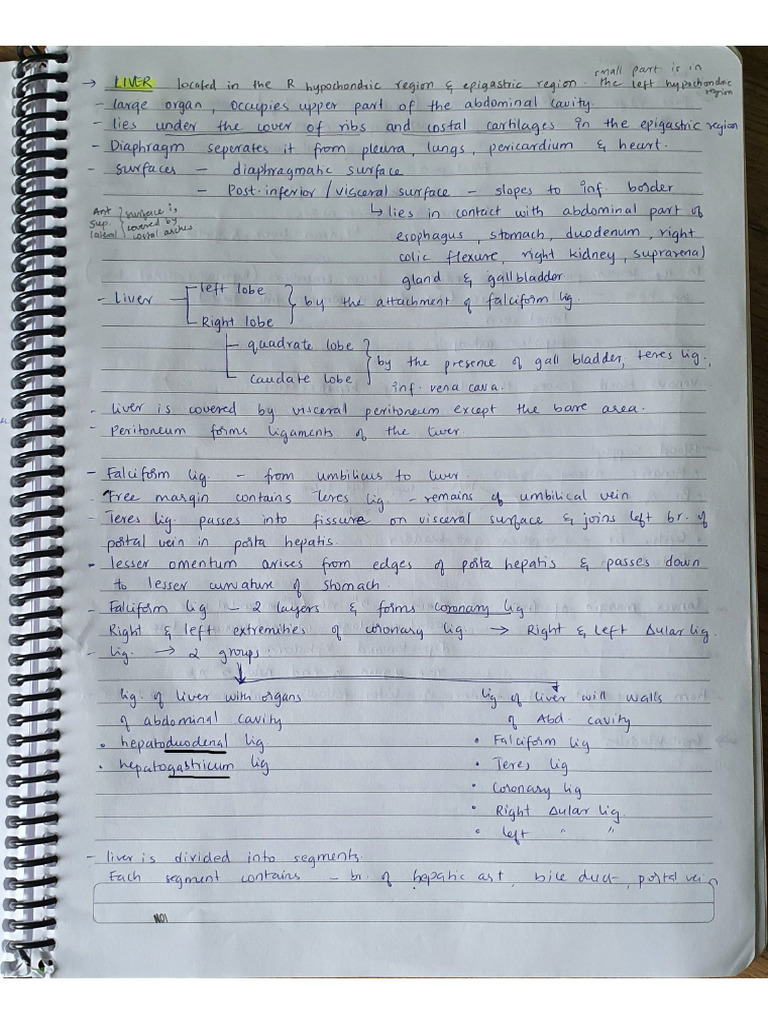 → LIVER located in the R hypochondric region & epigastric region. small part is in the left hypochondric region
- large organ, occupies upper part of the abdominal cavity.
- lies under the cover of ribs and costal cartilages in the epigastric region
- Diaphragm seperates it from pleura, lungs, pericardium & heart.
- Surfaces - diaphragmatic surface
- Post. inferior / visceral surface - slopes to inf. border
Ant Sup. lateral } surface is covered by costal arches
↳ lies in contact with abdominal part of
esophagus, stomach, duodenum, right
colic flexure, right kidney, suprarenal
gland & gallbladder
- Liver left lobe Right lobe } by the attachment of falciform lig.
- quadrate lobe
- caudate lobe } by the presence of gall bladder, teres lig.,
inf. vena cava.
- liver is covered by visceral peritoneum except the bare area.
- Peritoneum forms ligaments of the liver.
- Falciform lig. - from umbilicus to liver.
- Free margin contains Teres lig - remains of umbilical vein
- Teres lig. passes into fissure on visceral surface & joins left br. of
portal vein in porta hepatis.
- lesser omentum arises from edges of porta hepatis & passes down
to lesser curvature of stomach.
- Falciform lig - 2 layers & forms coronary lig.
Right & left extremities of coronary lig. → Right & Left Δular lig.
- lig. → 2 groups:
lig. of liver with organs
of abdominal cavity
• hepatoduodenal lig.
• hepatogastricum lig
lig. of liver will walls
of Abd. cavity
• Falciform lig
• Teres lig
• Coronary lig
• Right Δular lig.
• left " "
- liver is divided into segments.
Each segment contains - br. of hepatic art, bile duct, portal vei
NO1